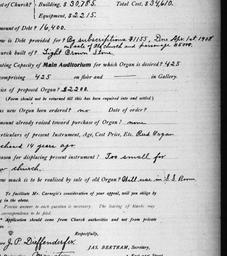 of Church? Building, $30,785. Total Cost, $34610.
Equipment, $2215.
mount of Debt? 16,400.
is Debt provided for? By subscriptions $1155, Due Apr. 1st 1908
church and parsonage $5000.
urch built of? Light Brown Stone
ating Capacity of Main Auditorium for which Organ is desired? 425
omprising 425 on floor and — in Gallery.
of proposed Organ? $2200.
(Form should not be returned till this has been enquired into and settled.)
new Organ been ordered? no Date of order?
mount already raised toward purchase of Organ? none
rticulars of present Instrument, Age, Cost Price, Etc. Reed Organ
chased 14 years ago
eason for displacing present instrument? Too small for
church.
much is to be realized by sale of old Organ? Will use in S.S. Room
To facilitate Mr. Carnegie's consideration of your appeal, will you oblige by
g in the above.
Precise answer to each question is necessary. The leaving of blanks may
correspondence to be filed.
Application should come from Church authorities and not from private
Respectfully,
J. P. Dieffenderfer
JAS. BERTRAM, Secretary,